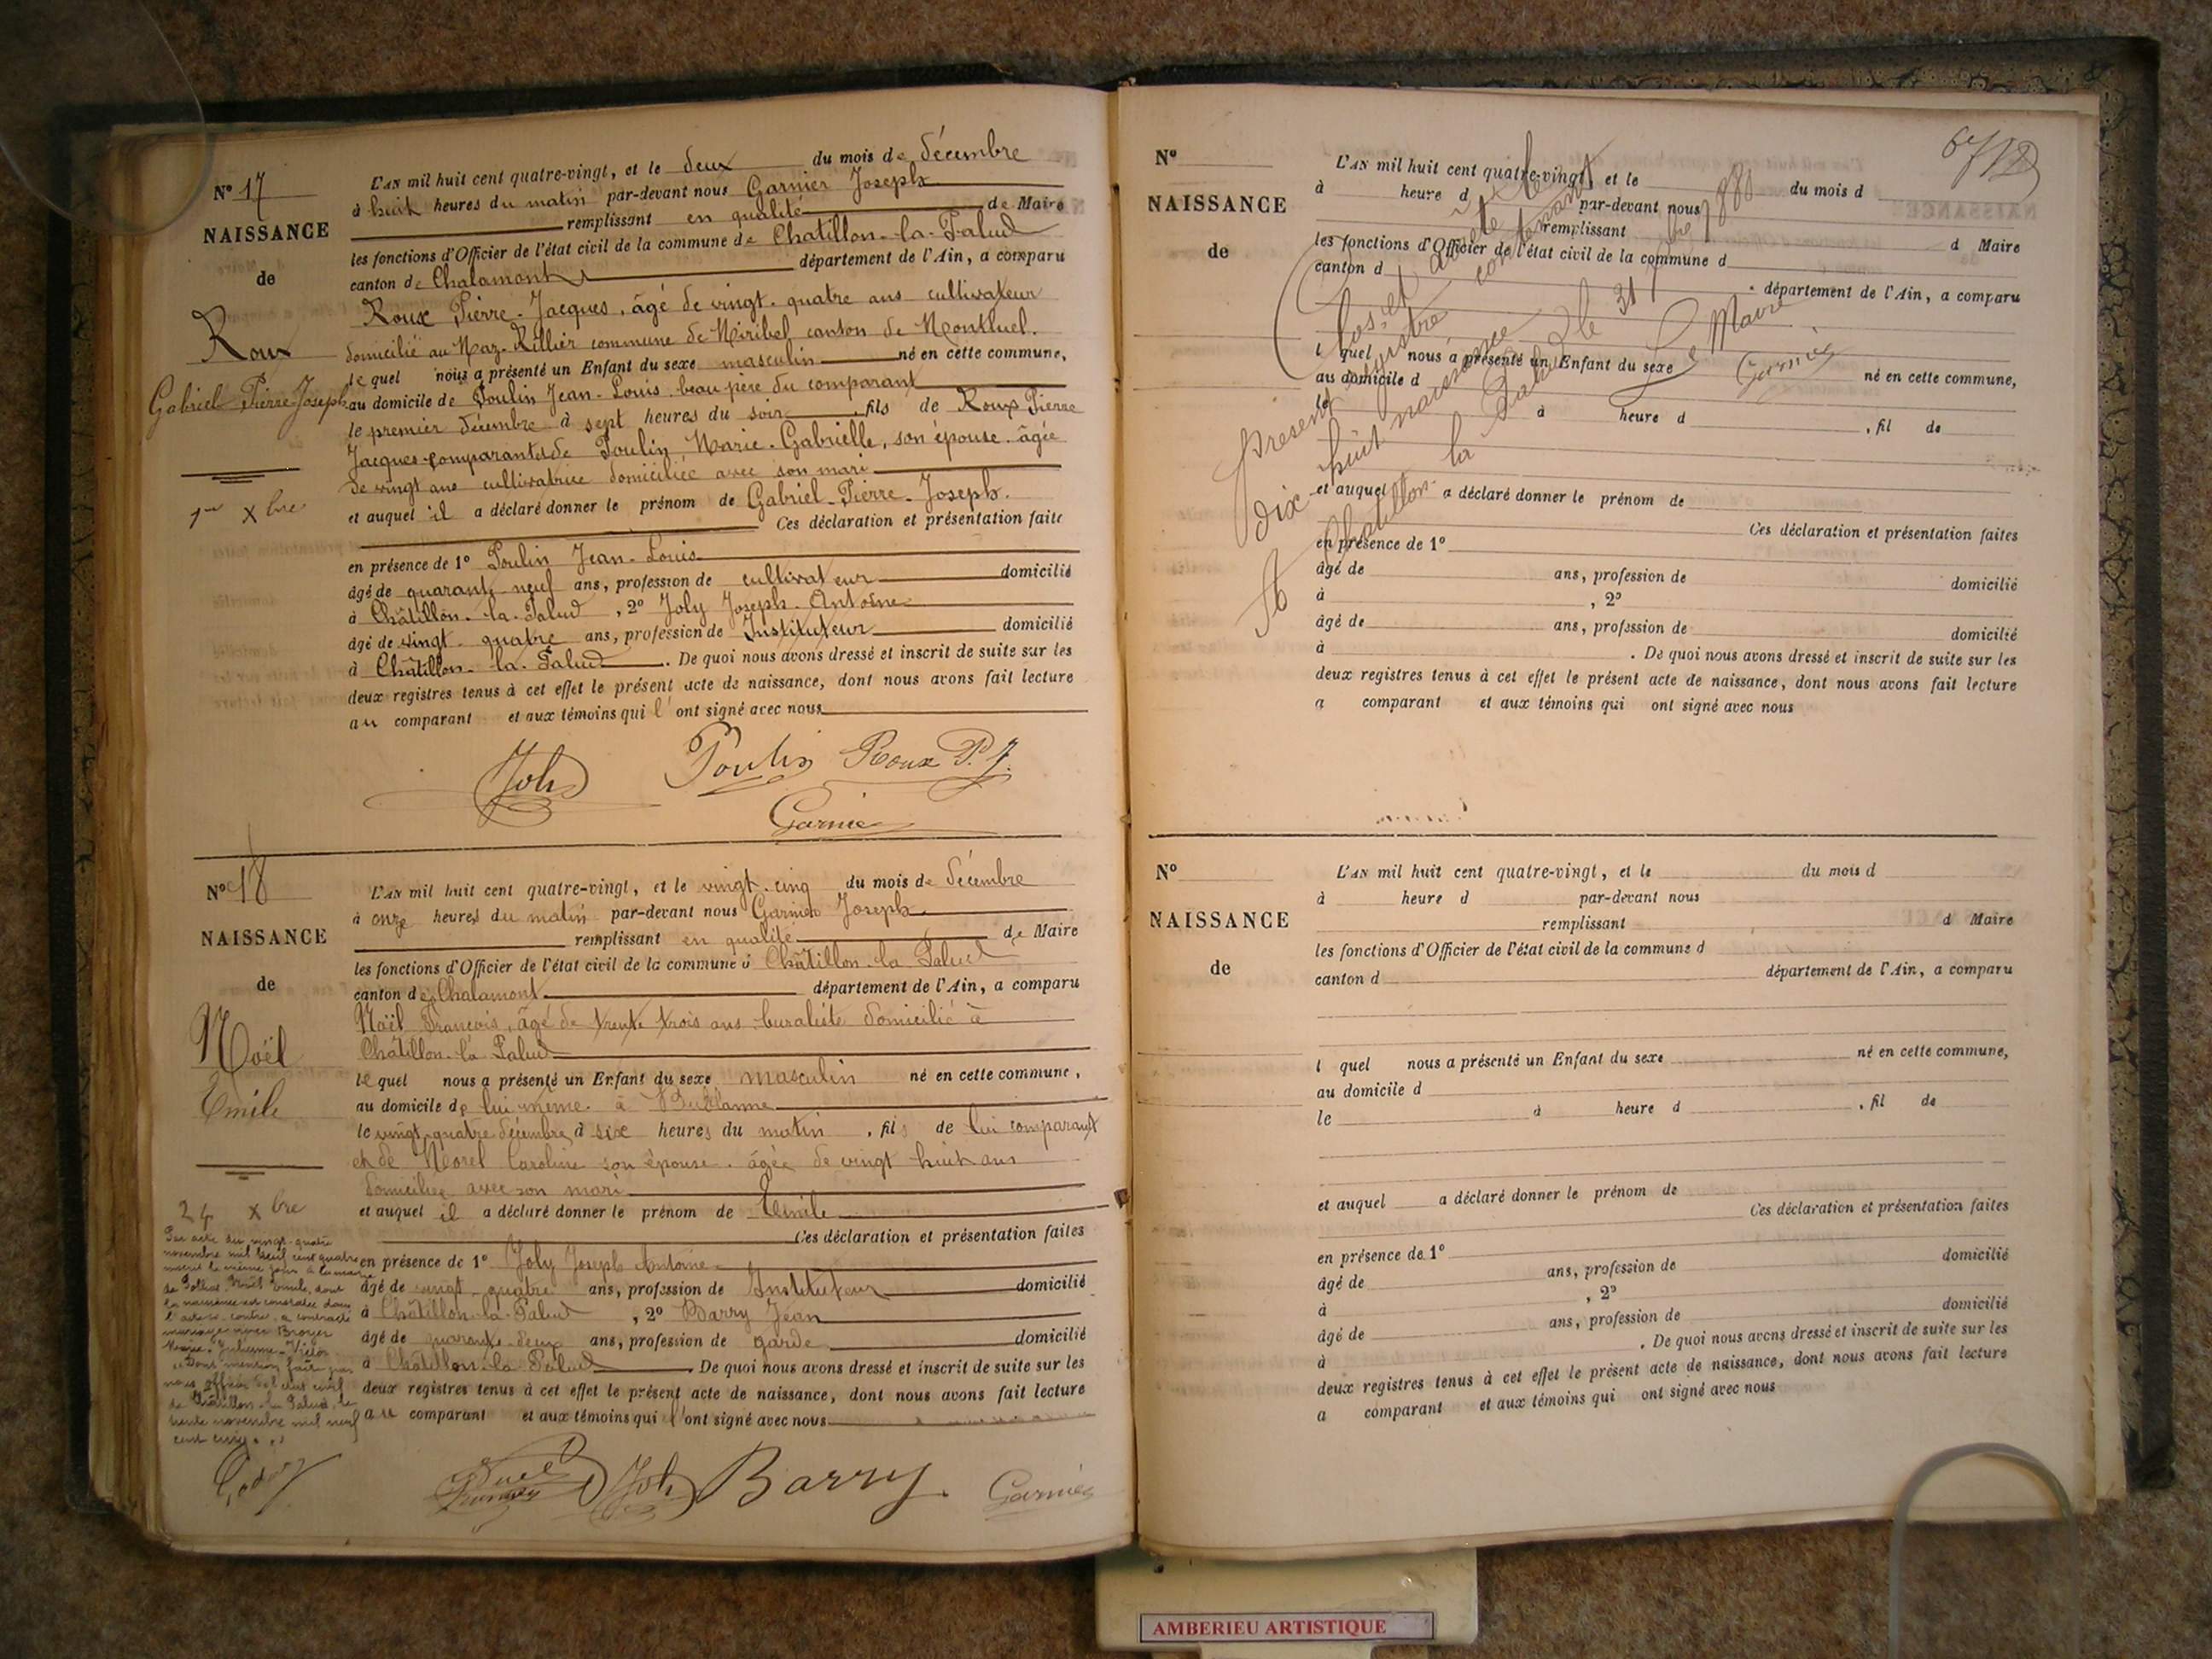 N° 17
NAISSANCE
de
Roux
Gabriel Pierre Joseph
1er Xbre
L'AN mil huit cent quatre-vingt, et le deux du mois de décembre
à huit heures du matin par-devant nous Garnier Joseph
remplissant en qualité de Maire
les fonctions d'Officier de l'état civil de la commune de Chatillon-la-Palud
canton de Chalamont département de l'Ain, a comparu
Roux Pierre-Jacques, âgé de vingt-quatre ans cultivateur
domicilié au Maz-Rillier commune de Miribel canton de Montluel.
lequel nous a présenté un Enfant du sexe masculin né en cette commune,
au domicile de Poulin Jean-Louis beau père du comparant
le premier décembre à sept heures du soir, fils de Roux Pierre
Jacques comparant et de Poulin Marie-Gabrielle, son épouse âgée
de vingt ans cultivatrice domiciliée avec son mari
et auquel il a déclaré donner le prénom de Gabriel-Pierre-Joseph.
Ces déclaration et présentation faite
en présence de 1° Poulin Jean-Louis
âgé de quarante neuf ans, profession de cultivateur domicilié
à Châtillon-la-Palud, 2° Joly Joseph-Antoine
âgé de vingt-quatre ans, profession de Instituteur domicilié
à Châtillon-la-Palud. De quoi nous avons dressé et inscrit de suite sur les
deux registres tenus à cet effet le présent acte de naissance, dont nous avons fait lecture
au comparant et aux témoins qui l'ont signé avec nous
Joly Poulin Roux P. J.
Garnier
N° 18
NAISSANCE
de
Noël
Emile
24 Xbre
L'AN mil huit cent quatre-vingt, et le vingt-cinq du mois de décembre
à onze heures du matin par-devant nous Garnier Joseph
remplissant en qualité de Maire
les fonctions d'Officier de l'état civil de la commune d Châtillon-la-Palud
canton de Chalamont département de l'Ain, a comparu
Noël François, âgé de trente trois ans buraliste domicilié à
Châtillon-la-Palud
lequel nous a présenté un Enfant du sexe masculin né en cette commune,
au domicile de lui même à
le vingt-quatre décembre à six heures du matin, fils de lui comparant
et de Morel Caroline son épouse, âgée de vingt huit ans
domiciliée avec son mari
et auquel il a déclaré donner le prénom de Emile
Ces déclaration et présentation faites
en présence de 1° Joly Joseph Antoine
âgé de vingt-quatre ans, profession de Instituteur domicilié
à Châtillon-la-Palud, 2° Barry Jean
âgé de quarante-deux ans, profession de garde domicilié
à Châtillon-la-Palud De quoi nous avons dressé et inscrit de suite sur les
deux registres tenus à cet effet le présent acte de naissance, dont nous avons fait lecture
au comparant et aux témoins qui l'ont signé avec nous
Par acte du vingt-quatre
novembre mil neuf cent quatre
inscrit le même jour à la mairie
de Noël Emile, dont
la naissance est constatée dans
l'acte ci-contre, a contracté
mariage avec
Dont mention faite par
nous officier de l'état civil
de Châtillon-la-Palud, le
trente novembre mil neuf
cent
Joly Barry Garnier
N°
NAISSANCE
de
L'AN mil huit cent quatre-vingt, et le du mois d
à heure d par-devant nous
remplissant
d Maire
les fonctions d'Officier de l'état civil de la commune d
canton d département de l'Ain, a comparu
l quel nous a présenté un Enfant du sexe né en cette commune,
au domicile d
le à heure d , fil de
et auquel a déclaré donner le prénom de
Ces déclaration et présentation faites
en présence de 1°
âgé de ans, profession de domicilié
à , 2°
âgé de ans, profession de domicilié
à . De quoi nous avons dressé et inscrit de suite sur les
deux registres tenus à cet effet le présent acte de naissance, dont nous avons fait lecture
a comparant et aux témoins qui ont signé avec nous
Clos et arrêté le
présent registre contenant
dix huit naissances
A Chatillon la Palud le 31 Xbre 1880
Le Maire
Garnier
N°
NAISSANCE
de
L'AN mil huit cent quatre-vingt, et le du mois d
à heure d par-devant nous
remplissant d Maire
les fonctions d'Officier de l'état civil de la commune d
canton d département de l'Ain, a comparu
l quel nous a présenté un Enfant du sexe né en cette commune,
au domicile d
le à heure d , fil de
et auquel a déclaré donner le prénom de
Ces déclaration et présentation faites
en présence de 1°
âgé de ans, profession de domicilié
à , 2°
âgé de ans, profession de domicilié
à . De quoi nous avons dressé et inscrit de suite sur les
deux registres tenus à cet effet le présent acte de naissance, dont nous avons fait lecture
a comparant et aux témoins qui ont signé avec nous
AMBERIEU ARTISTIQUE